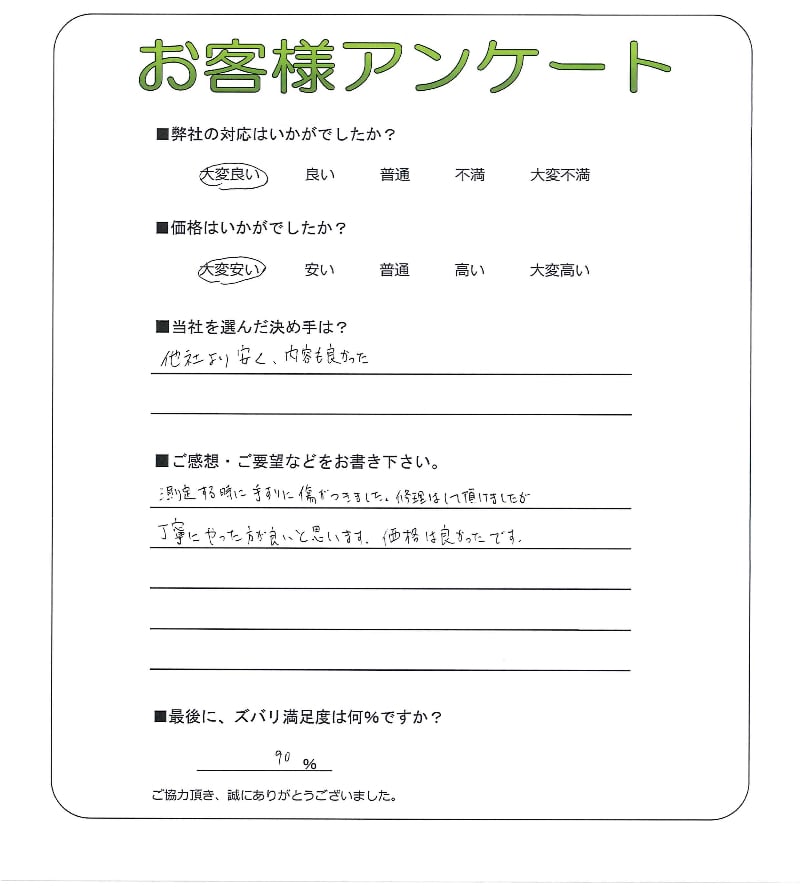 お客様アンケート
■弊社の対応はいかがでしたか？
大変良い 良い 普通 不満 大変不満
■価格はいかがでしたか？
大変安い 安い 普通 高い 大変高い
■当社を選んだ決め手は？
他社より安く、内容も良かった
■ご感想・ご要望などをお書き下さい。
測定する時に手すりに傷がつきました。修理はして頂けましたが
丁寧にやった方が良いと思います。価格は良かったです。
■最後に、ズバリ満足度は何％ですか？
90 ％
ご協力頂き、誠にありがとうございました。